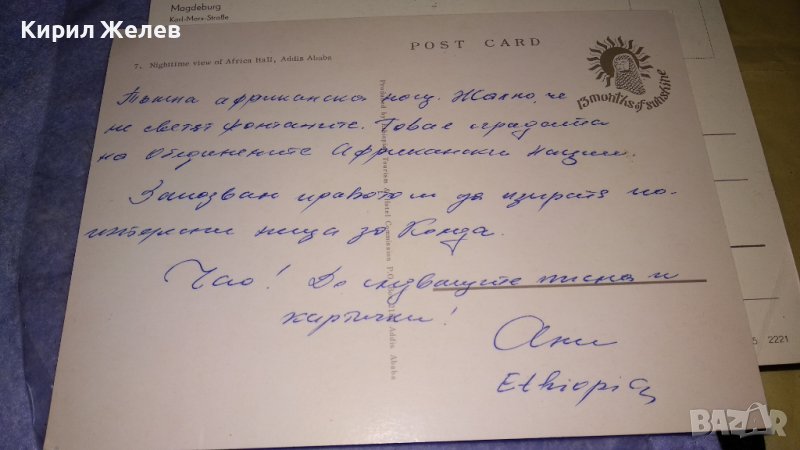 Magdeburg
Karl-Marx-Straße
Кирил Желев
POST CARD
7. Nighttime view of Africa Hall, Addis Ababa
13 months of sunshine
Тъмна африканска нощ. Жалко, че
не светят фонтаните. Това е сградата
на обединените Африкански Нации.
Запазвам правото си да изпратя по-
интересни неща за
Чао! До следващите писма и
картички!
Ани
Ethiopia
Tourism & Hotel Commission P.O. Addis Ababa
5 2221
BAZAR